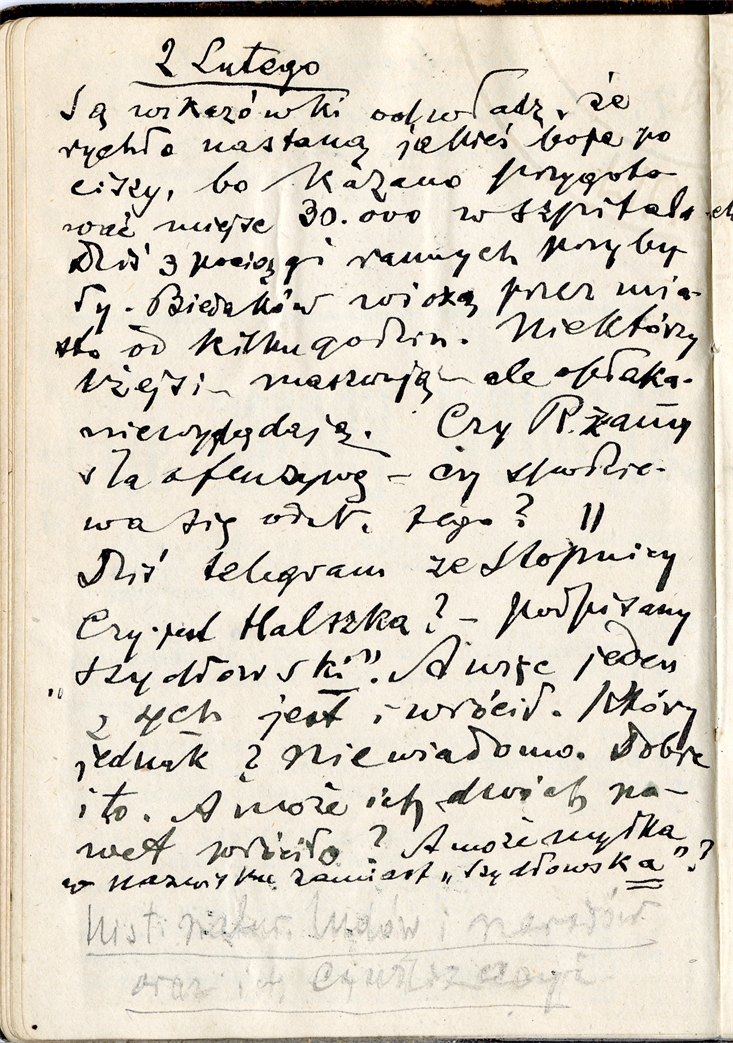 2 Lutego
Są wskazówki od władz, że
rychło nastaną jakieś boje po
ciszy, bo kazano przygoto-
wać miejsc 30.000 w szpitalach
Dziś 3 pociągi rannych przyby-
ły. Biedaków wiozą przez mia-
sto od kilku godzin. Niektórzy
lżejsi – maszerują – ale
nie wyglądają. Czy R.
ofenzywę – czy spodzie-
wa się tego? ||
Dziś telegram ze Stopnicy
Czy jest Halszka? – podpisany
„Szydłowski”. A więc jeden
z tych jest i wrócił. Który
jednak? Niewiadomo. Dobre
i to. A może ich dwóch na-
wet wróciło? A może myłka
w nazwisku zamiast „Szydłowska”?
Hist. natur. ludów i narodów
oraz ich cywilizacyi